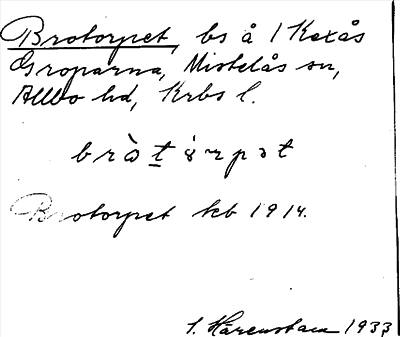 Brotorpet, bs å 1 Kexås
Groparna, Mistelås sn,
Allbo hd, Krbs l.
bròtórpət
Brotorpet kb 1914.
S. Härenstam 1933